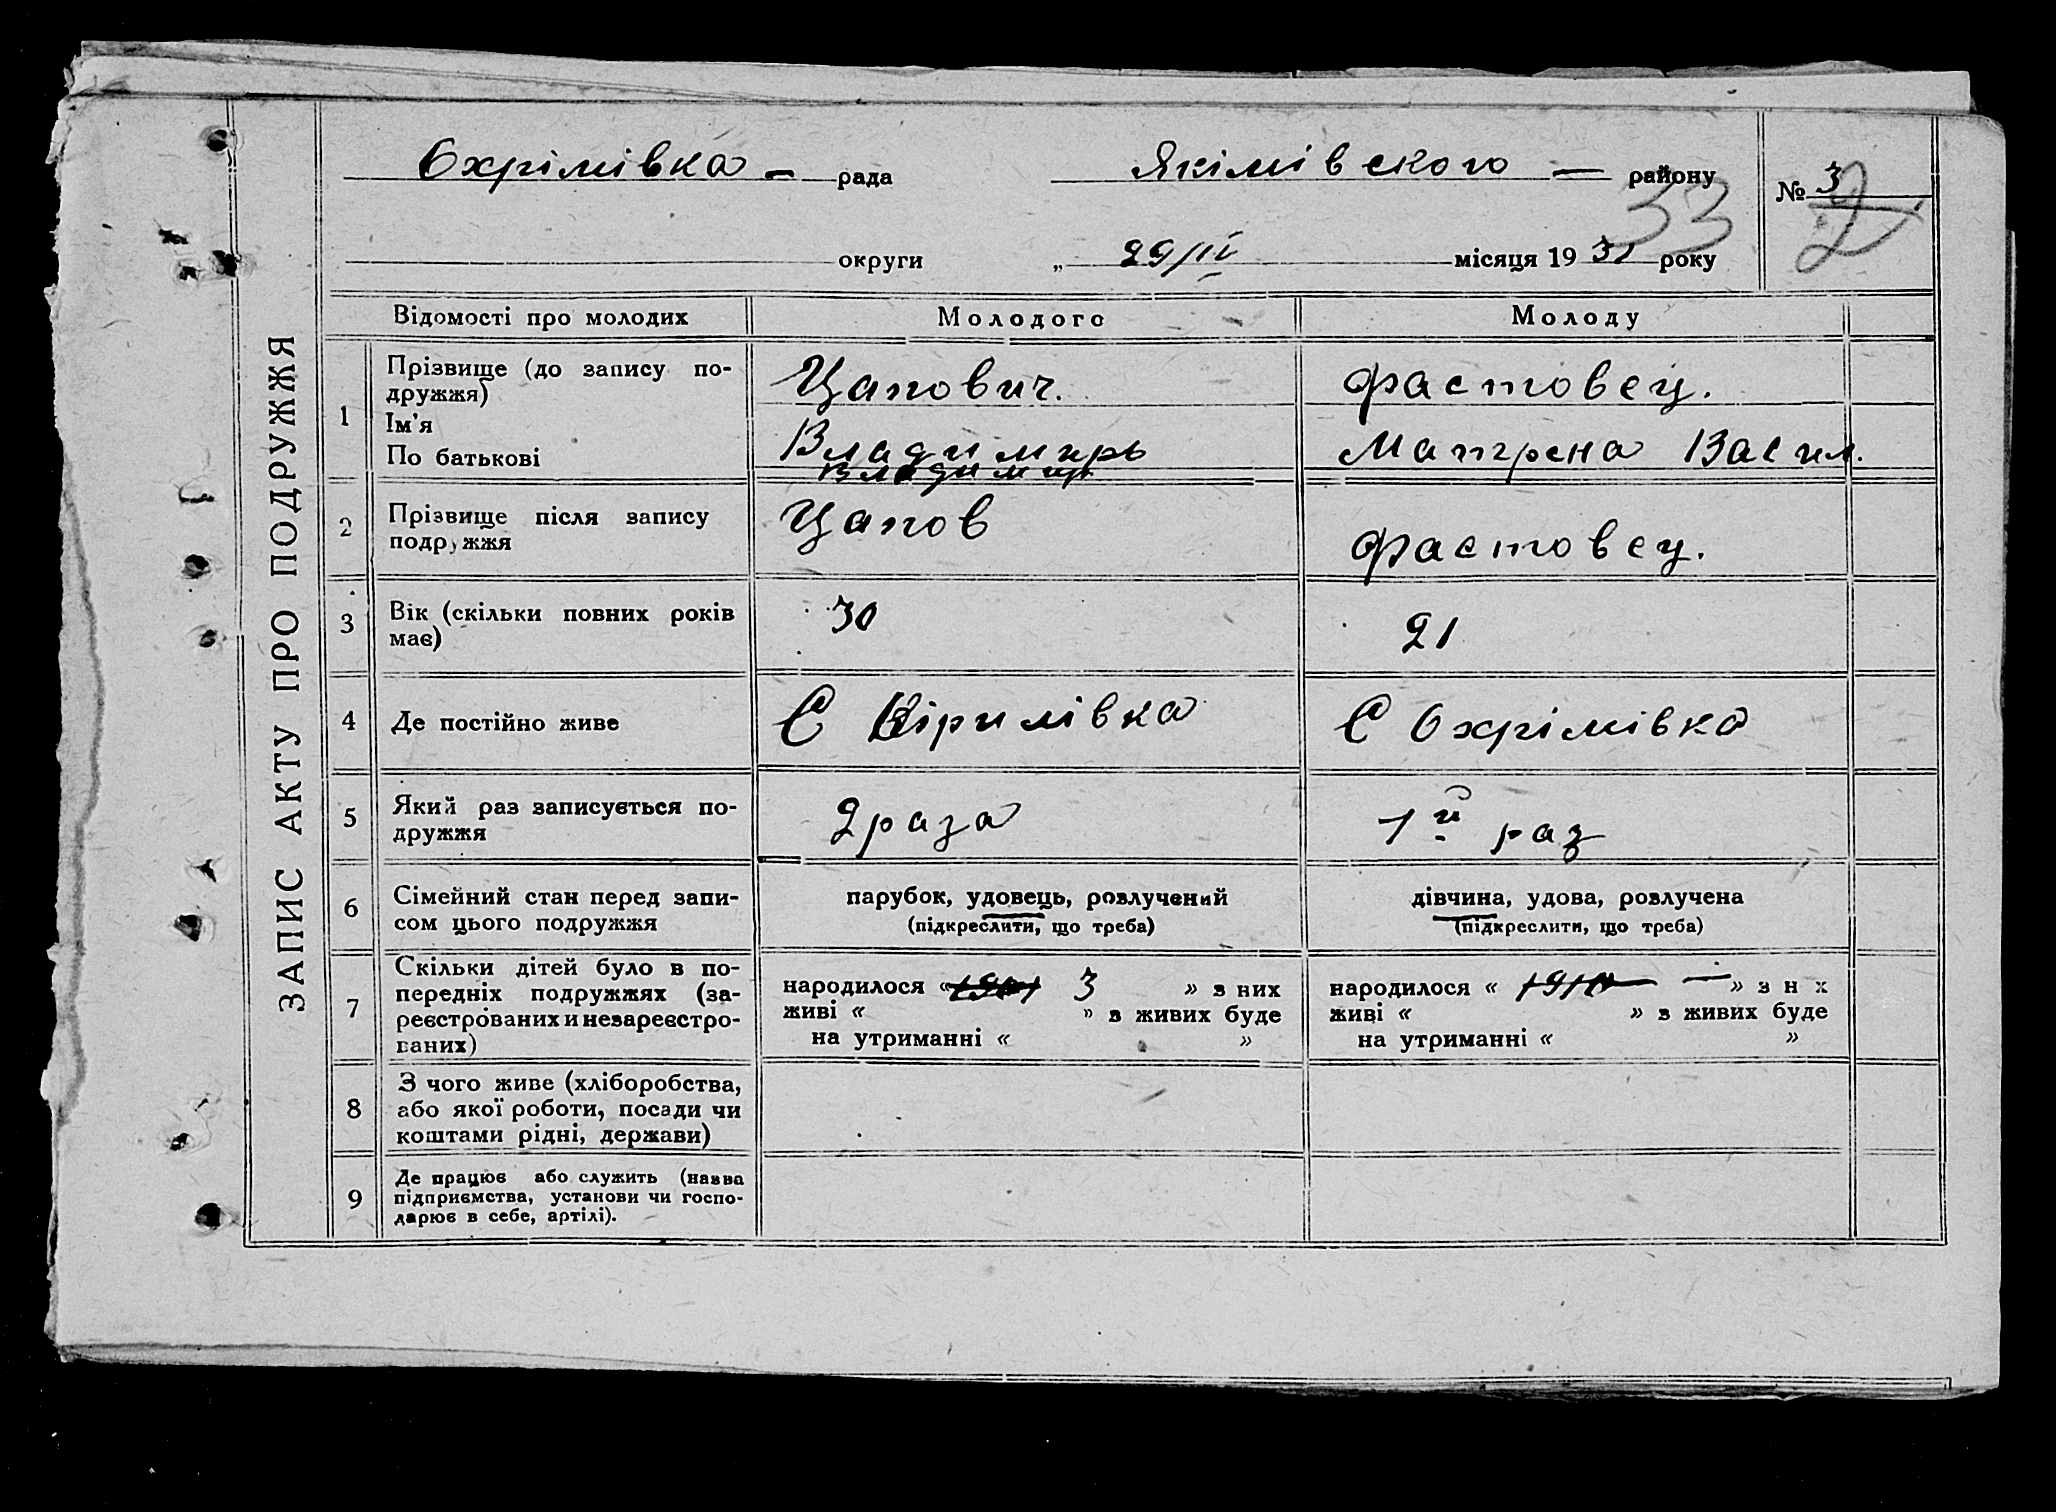 ЗАПИС АКТУ ПРО ПОДРУЖЖЯ
Охрімівка — рада Якімівского — району
№ 3
2
33
округи „ 29/IV місяця 1931 року
Відомості про молодих Молодого Молоду
1 Прізвище (до запису подружжя) Цапович. Фастовец.
Ім'я
По батькові Владимирь Мотрена Васил.
Владимир
2 Прізвище після запису подружжя Цапов Фастовец.
3 Вік (скільки повних років має) 30 21
4 Де постійно живе С Кірилівка С Охрімівка
5 Який раз записується подружжя 2 раза 1й раз
6 Сімейний стан перед записом цього подружжя парубок, удовець, розлучений дівчина, удова, розлучена
(підкреслити, що треба) (підкреслити, що треба)
7 Скільки дітей було в попередніх подружжях (зареєстрованих и незареєстрованих) народилося « 3 » з них народилося « 1910 — » з н х
живі « » з живих буде живі « » з живих буде
на утриманні « » на утриманні « »
8 З чого живе (хліборобства, або якої роботи, посади чи коштами рідні, держави)
9 Де працює або служить (назва підприємства, установи чи господарює в себе, артілі).